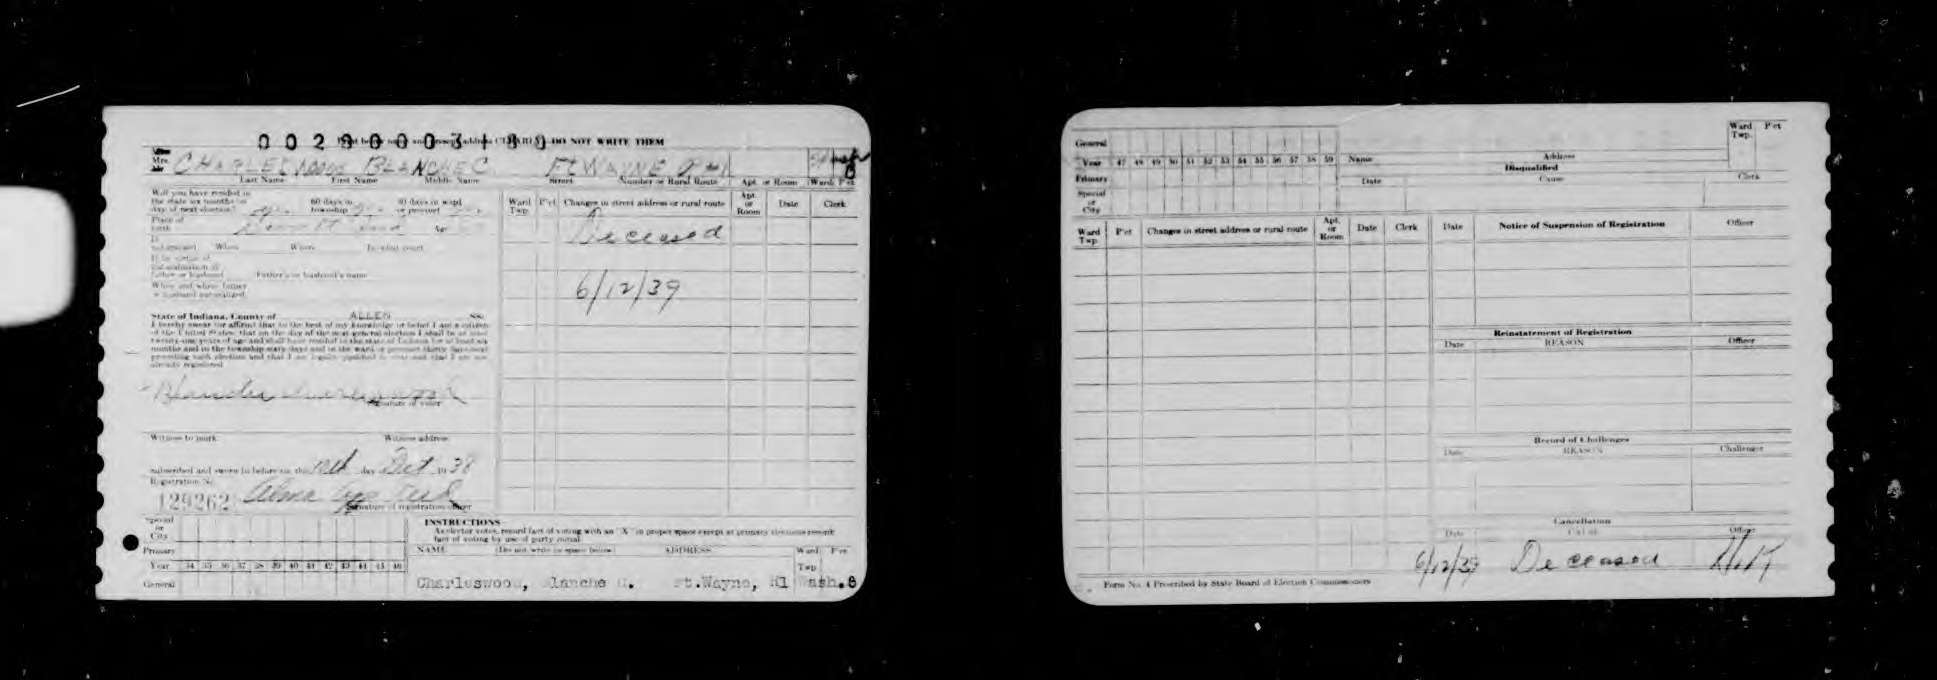 00290003180
DO NOT WRITE THEM
Mrs. CHARLESWOOD BLANCHE C. Ft WAYNE
Last Name First Name Middle Name Street Number or Rural Route Apt. or Room Ward P'ct
Will you have resided in
the state six months on 60 days in 30 days in ward
day of next election? township or precinct
Place of
birth Age
Is
naturalized When Where In what court
If by virtue of
naturalization of
father or husband Father's or husband's name
When and where father
or husband naturalized
State of Indiana, County of ALLEN SS:
I hereby swear (or affirm) that to the best of my knowledge or belief I am a citizen
of the United States; that on the day of the next general election I shall be at least
twenty-one years of age and shall have resided in the state of Indiana for at least six
months and in the township sixty days and in the ward or precinct thirty days next
preceding such election and that I am legally qualified to vote and that I am not
already registered.
Signature of voter
Witness to mark Witness address
Subscribed and sworn to before me this day Oct 1938
Registration No.
129262 Alma
Signature of registration officer
Ward Twp. P'ct Changes in street address or rural route Apt. or Room Date Clerk
Deceased
6/12/39
Special
or
City
Primary
Year 34 35 36 37 38 39 40 41 42 43 44 45 46
General
INSTRUCTIONS
As elector votes, record fact of voting with an "X" in proper space except at primary elections record
fact of voting by use of party initial
NAME (Do not write in space below) ADDRESS Ward Twp P'ct
Charleswood, Blanche C. Ft.Wayne, R1 Wash.8
General
Year 47 48 49 50 51 52 53 54 55 56 57 58 59
Primary
Special
or
City
Name Address Ward Twp. P'ct
Disqualified
Date Cause Clerk
Ward Twp P'ct Changes in street address or rural route Apt. or Room Date Clerk
Date Notice of Suspension of Registration Officer
Reinstatement of Registration
Date REASON Officer
Record of Challenges
Date REASON Challenger
Cancellation
Date CAUSE Officer
6/12/39 Deceased
Form No. 4 Prescribed by State Board of Election Commissioners